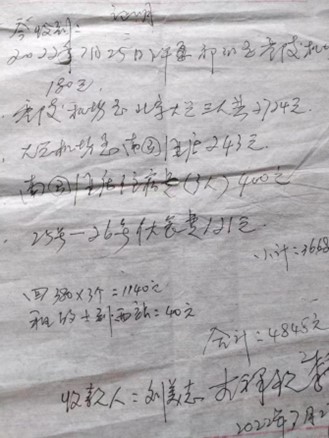 证明
今收到:
2022年7月25日
180元.
机场至北京大兴三人共2724元.
大兴机场至南国住店243元
南国住店住宿费(3人)400元
25号—26号伙食费121元
小计:3668
回380×3个=1140元
租的士到西站:40元
合计:4845元
收款人:刘美志
2022年7月2